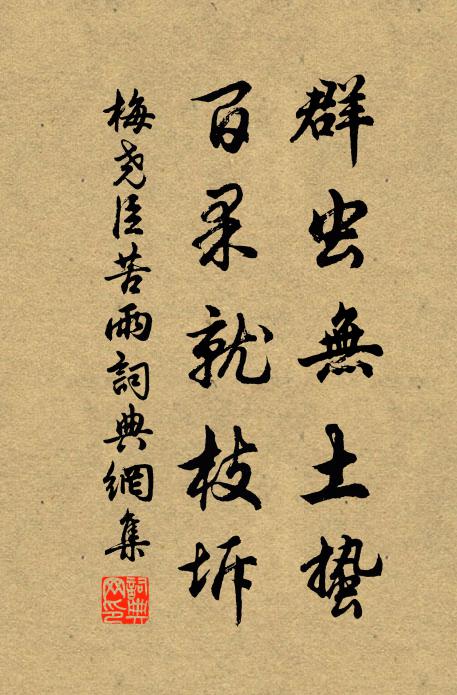 群虫無土蟄
百果就枝坼
梅尧臣苦雨詞典網集
詞典網印